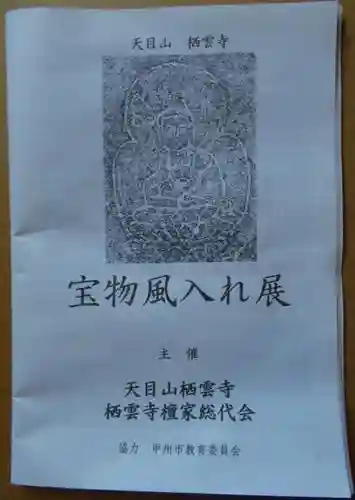 天目山 栖雲寺
宝物風入れ展
主 催
天目山栖雲寺
栖雲寺檀家総代会
協力 甲州市教育委員会